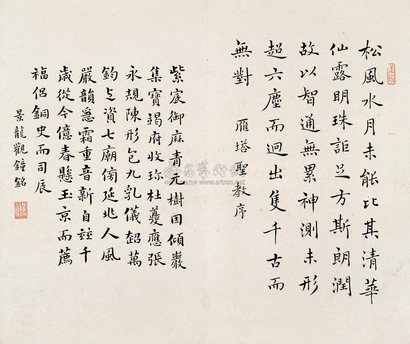 松風水月未能比其清華
仙露明珠詎足方斯朗潤
故以智通無累神測未形
超六塵而迥出隻千古而
無對 雁塔聖教序
紫宸御麻青元樹因傾巖
集寶竭府收珍杜夔應張
永規陳形包九乳儀超萬
鈞 資七廟 延兆人風
嚴韻急霜重音新自 千
歲從今億春懸玉京而薦
福侶銅史而司辰
景龍觀鐘銘